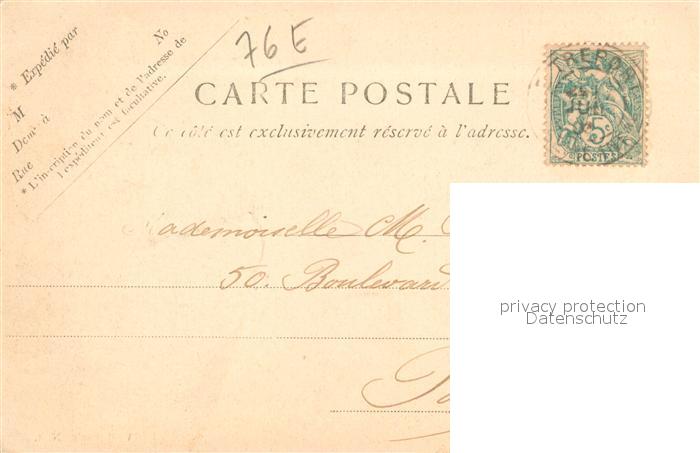 76 E
* Expédié par
M
Dem<sup>t</sup> à
Rue
No
* L'inscription du nom et de l'adresse de
l'expéditeur est facultative.
CARTE POSTALE
Ce côté est exclusivement réservé à l'adresse.
TRÉPORT
JUIN
5c
POSTES
Mademoiselle M.
50. Boulevard
privacy protection
Datenschutz